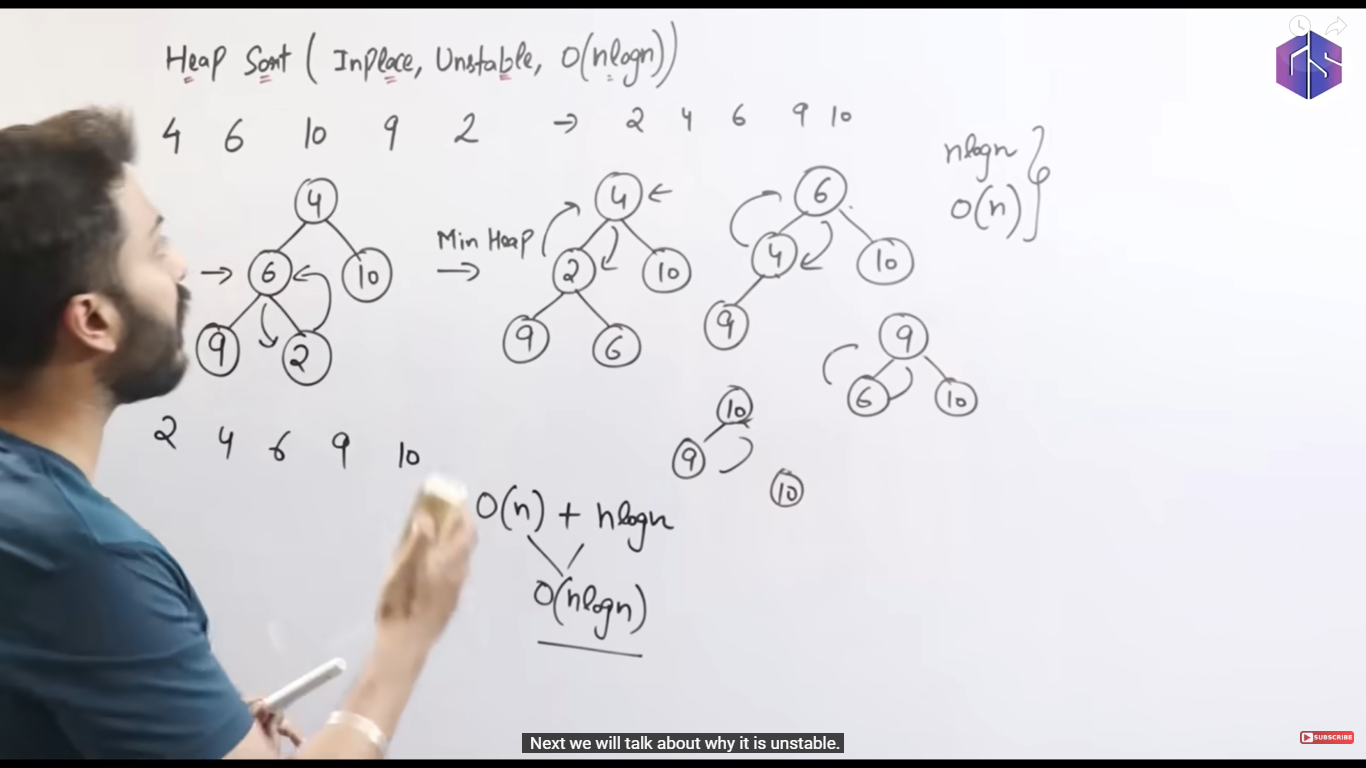 Heap Sort ( Inplace, Unstable, O(nlogn))
4 6 10 9 2 → 2 4 6 9 10
nlogn
O(n)
4
6 10
9 2
Min Heap
→
4
2 10
9 6
6
4 10
9
9
6 10
10
9
10
2 4 6 9 10
O(n) + nlogn
O(nlogn)
Next we will talk about why it is unstable.
SUBSCRIBE